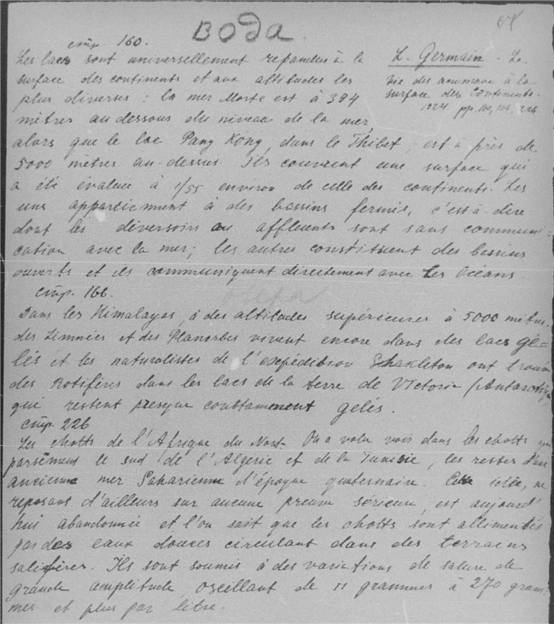 вода.
68
стр. 160.
L. Germain - La
vie des animaux à la
surface des continents.
1924 pp.
Les lacs sont universellement repandus à la
surface des continents et aux altitudes les
plus diverses : la mer Morte est à 394
mètres au dessous du niveau de la mer
alors que le lac Pang Kong, dans le Thibet, est à près de
5000 mètres au-dessus. Ils couvrent une surface qui
a été évaluée à 1/55 environ de celle des continents. Les
uns appartiennent à des bassins fermés, c'est à dire
dont les déversoirs ou affluents sont sans communi-
cation avec la mer; les autres constituent des bassins
ouverts et ils communiquent directement avec les Océans.
стр. 166.
озера
Dans les Himalayas, à des altitudes supérieures à 5000 mètres
des Limnées et des Planorbes vivent encore dans des lacs ge-
lés et les naturalistes de l'expédition Shakleton ont trouvé
des Rotifères dans les lacs de la terre de Victoria (Antarctique)
qui restent presque constamment gelés.
стр. 226
Les chotts de l'Afrique du Nord. On a voulu voir dans les chotts qui
parsèment le sud de l'Algérie et de la Tunisie, les restes d'une
ancienne mer Saharienne d'époque quaternaire. Cette idée, ne
reposant d'ailleurs sur aucune preuve sérieuse, est aujourd'
hui abandonnée et l'on sait que les chotts sont alimentés
par des eaux douces circulant dans des terrains
salifères. Ils sont soumis à des variations de salure de
grande amplitude, oscillant de 11 grammes à 270 gram-
mes et plus par litre.